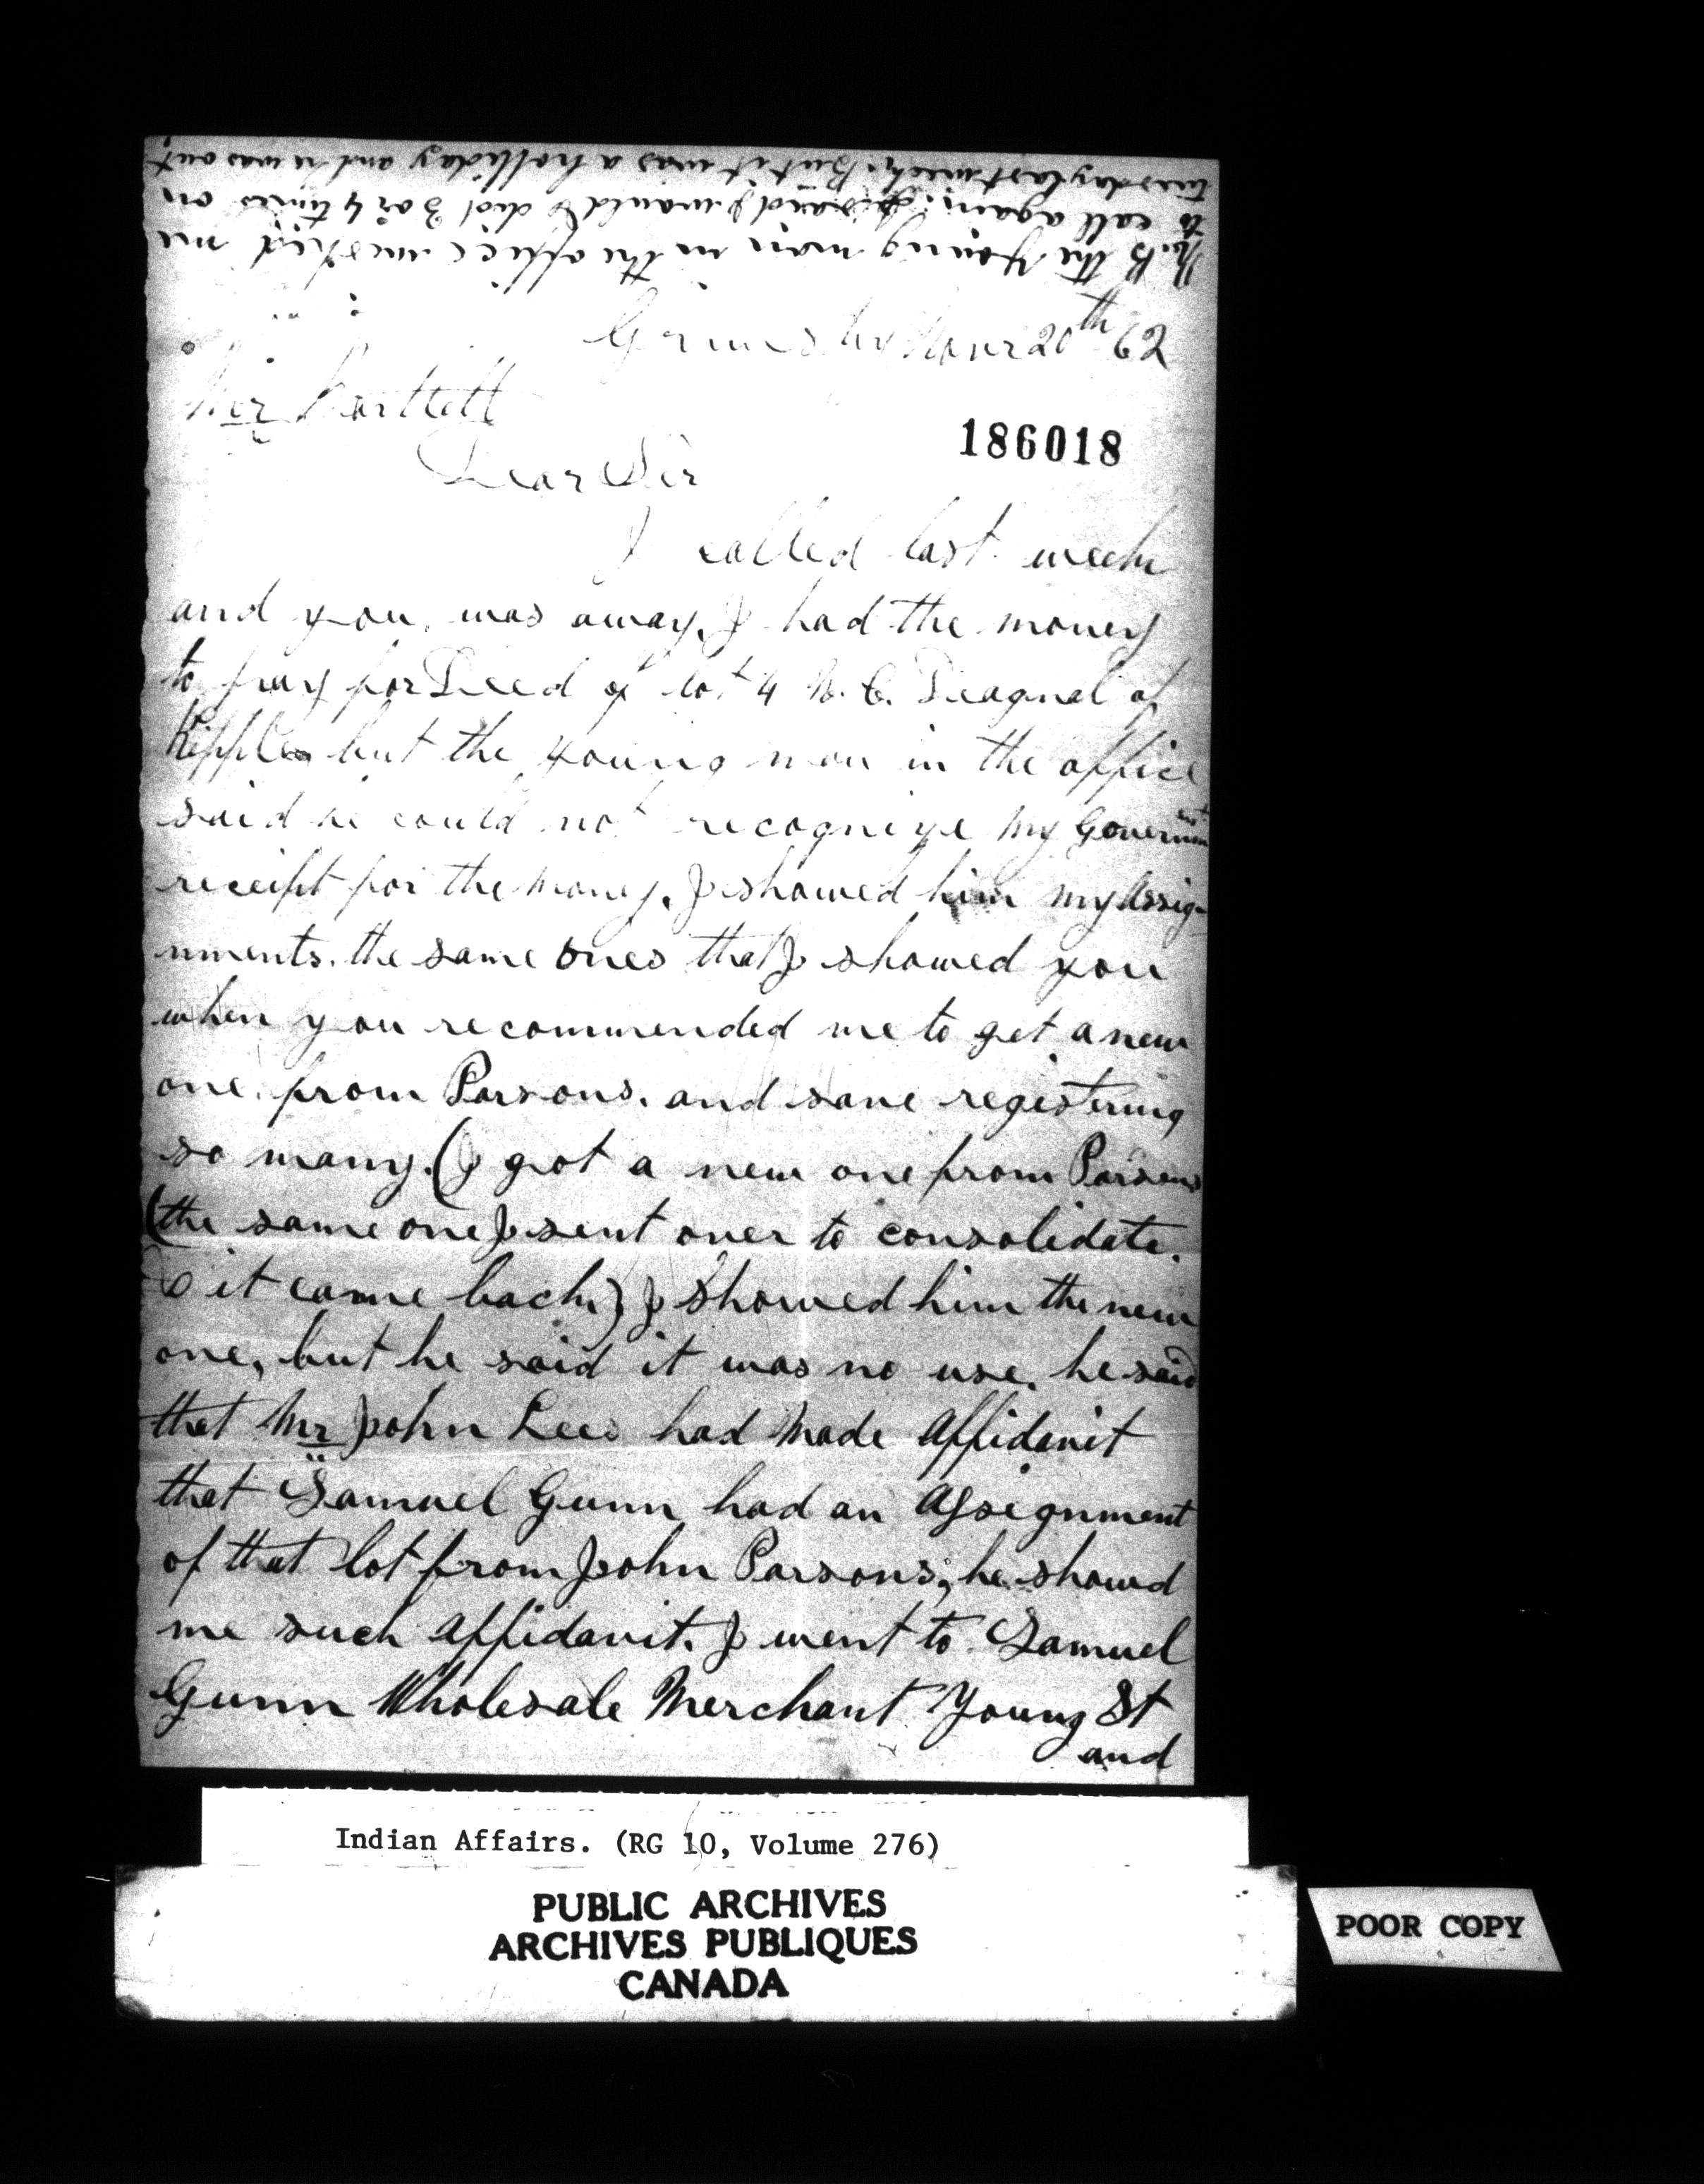 N.B the Young man in the office wished me
to call again: I said I would & did 3 or 4 times on
Tuesday last week: But it was a holliday and he was out
Grimsby Novr 20th 62
Mr Bartlett
186018
Dear Sir
I called last week
and you was away. I had the money
to pay for Deed of lot 4 N. C. Diagnal of
Kepple but the young man in the office
said he could not recognize my Government
receipt for the money. I showed him my Assig-
nments. the same ones that I showed you
when you recommended me to get a new
one from Parsons. and save registering
so many. (I got a new one from Parsons
(the same one I sent over to consolidate.
& it came back) I showed him the new
one, but he said it was no use. he said
that Mr John Lees had made Affidavit
that Samuel Gunn had an Assignment
of that lot from John Parsons, he showd
me such Affidavit. I went to Samuel
Gunn Wholesale Merchant Young St
and
Indian Affairs. (RG 10, Volume 276)
PUBLIC ARCHIVES
ARCHIVES PUBLIQUES
CANADA
POOR COPY